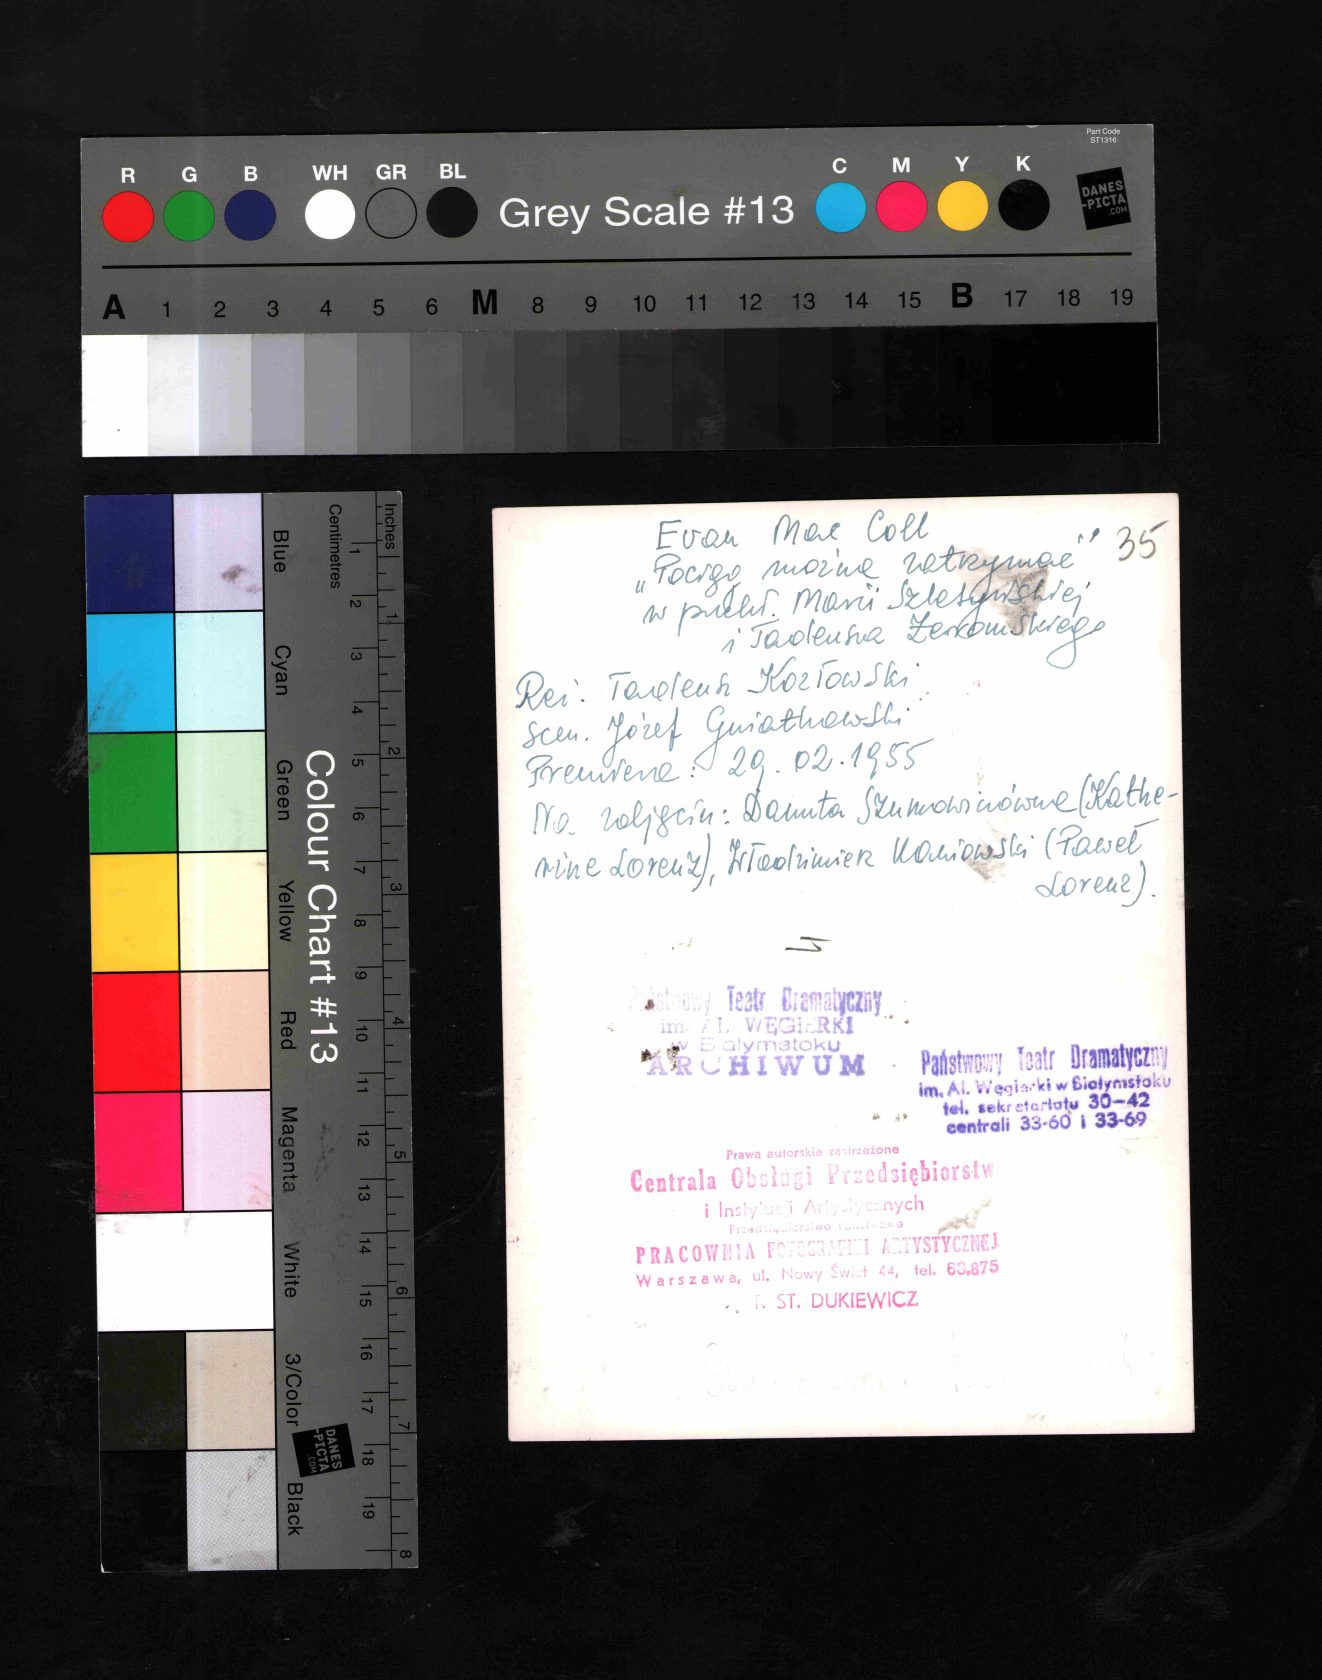 Part Code
ST1316
R G B WH GR BL Grey Scale #13 C M Y K
DANES
-PICTA
.COM
A 1 2 3 4 5 6 M 8 9 10 11 12 13 14 15 B 17 18 19
Colour Chart #13
Blue
Cyan
Green
Yellow
Red
Magenta
White
3/Color
Black
Centimetres
1 2 3 4 5 6 7 8 9 10 11 12 13 14 15 16 17 18 19
Inches
1 2 3 4 5 6 7 8
DANES
-PICTA
.COM
Evan Mac Coll
„Pociąg można zatrzymać” 35
w przekł. Marii
i Tadeusza Żerkowskiego
Reż. Tadeusz Kozłowski
scen. Józef Gwiatkowski
Premiera: 29.02.1955
Na zdjęciu: Danuta Szumowiczówna (Kathe-
rine Lorenz), Włodzimierz Kaniowski (Paweł
Lorenz).
Państwowy Teatr Dramatyczny
im. Al. WĘGIERKI
w Białymstoku
ARCHIWUM
Państwowy Teatr Dramatyczny
im. Al. Węgierki w Białymstoku
tel. sekretariatu 30-42
centrali 33-60 i 33-69
Prawa autorskie zastrzeżone
Centrala Obsługi Przedsiębiorstw
i Instytucji Artystycznych
Przedsiębiorstwo Państwowe
PRACOWNIA FOTOGRAFIKI ARTYSTYCZNEJ
Warszawa, ul. Nowy Świat 44, tel. 63.875
ST. DUKIEWICZ